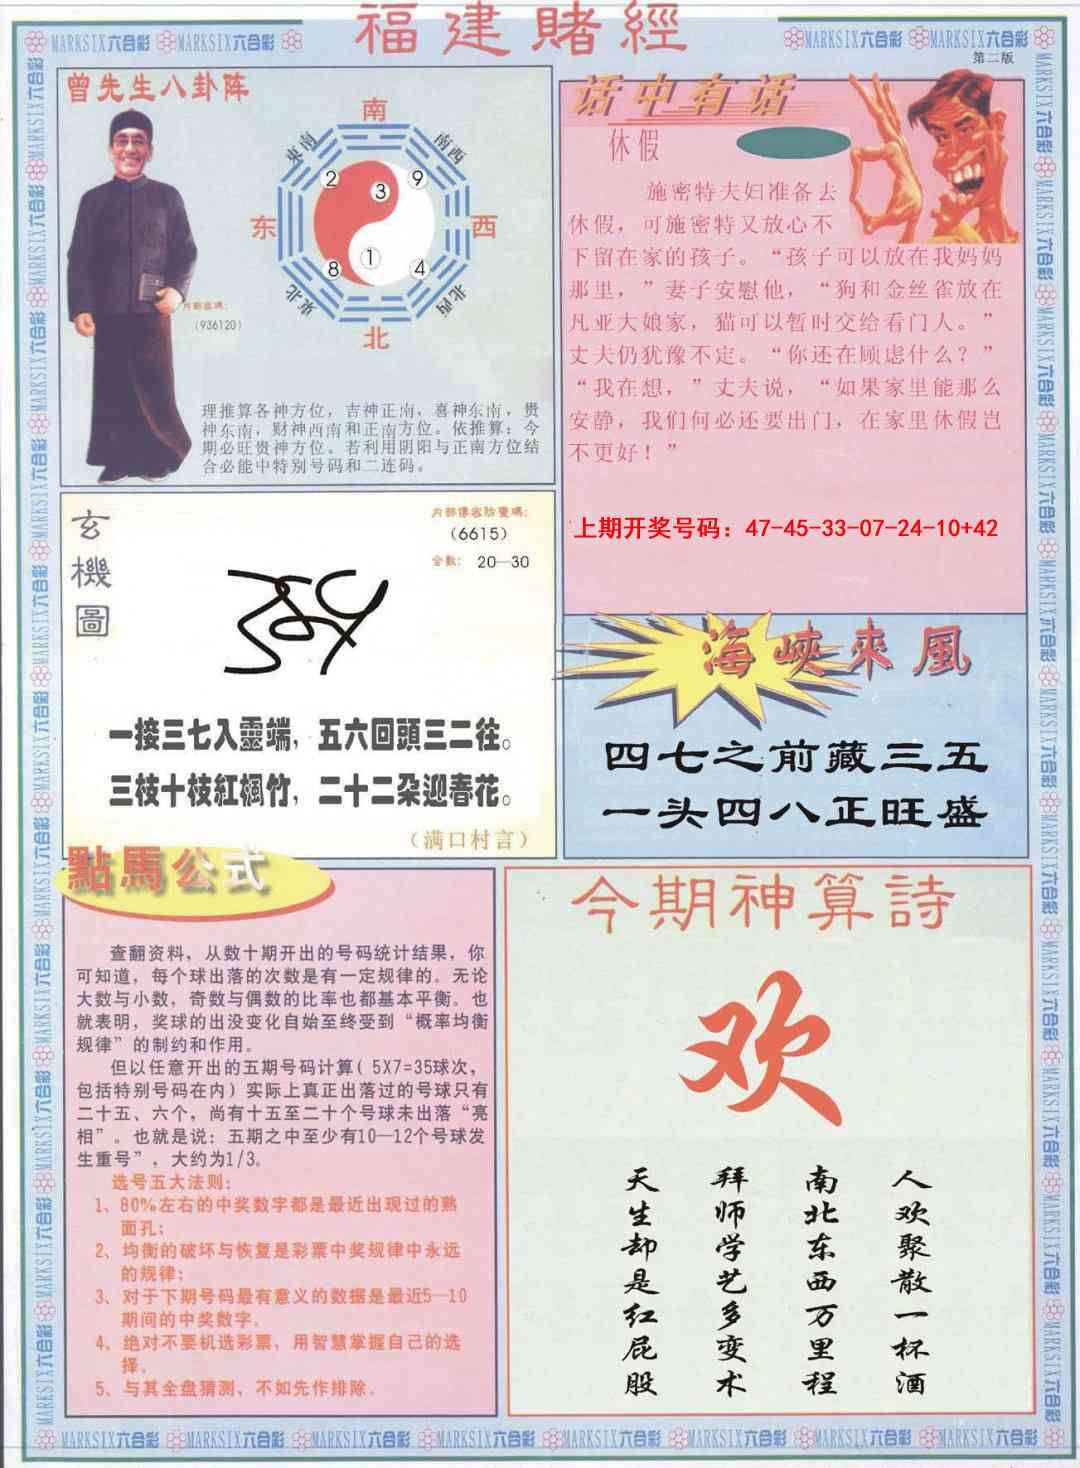 福建賭經
第二版
MARKSIX六合彩
曾先生八卦阵
南
東南
南西
2
3
9
东
西
8
1
4
東北
北西
北
内部密碼：
(936120)
理推算各神方位，吉神正南，喜神东南，贵
神东南，财神西南和正南方位。依推算：今
期必旺贵神方位。若利用阴阳与正南方位结
合必能中特别号码和二连码。
话中有话
休假
施密特夫妇准备去
休假，可施密特又放心不
下留在家的孩子。“孩子可以放在我妈妈
那里，”妻子安慰他，“狗和金丝雀放在
凡亚大娘家，猫可以暂时交给看门人。”
丈夫仍犹豫不定。“你还在顾虑什么？”
“我在想，”丈夫说，“如果家里能那么
安静，我们何必还要出门，在家里休假岂
不更好！”
上期开奖号码：47-45-33-07-24-10+42
玄機圖
(6615)
合数： 20—30
一接三七入靈端，五六回頭三二往。
三枝十枝紅楓竹，二十二朶迎春花。
（满口村言）
海峽來風
四七之前藏三五
一头四八正旺盛
點馬公式
查翻资料，从数十期开出的号码统计结果，你
可知道，每个球出落的次数是有一定规律的。无论
大数与小数，奇数与偶数的比率也都基本平衡。也
就表明，奖球的出没变化自始至终受到“概率均衡
规律”的制约和作用。
但以任意开出的五期号码计算（5X7=35球次，
包括特别号码在内）实际上真正出落过的号球只有
二十五、六个，尚有十五至二十个号球未出落“亮
相”。也就是说：五期之中至少有10—12个号球发
生重号”，大约为1/3。
选号五大法则：
1、80%左右的中奖数字都是最近出现过的熟
面孔；
2、均衡的破坏与恢复是彩票中奖规律中永远
的规律；
3、对于下期号码最有意义的数据是最近5—10
期间的中奖数字。
4、绝对不要机选彩票，用智慧掌握自己的选
择。
5、与其全盘猜测，不如先作排除。
今期神算詩
欢
人欢聚散一杯酒
南北东西万里程
拜师学艺多变术
天生却是红屁股